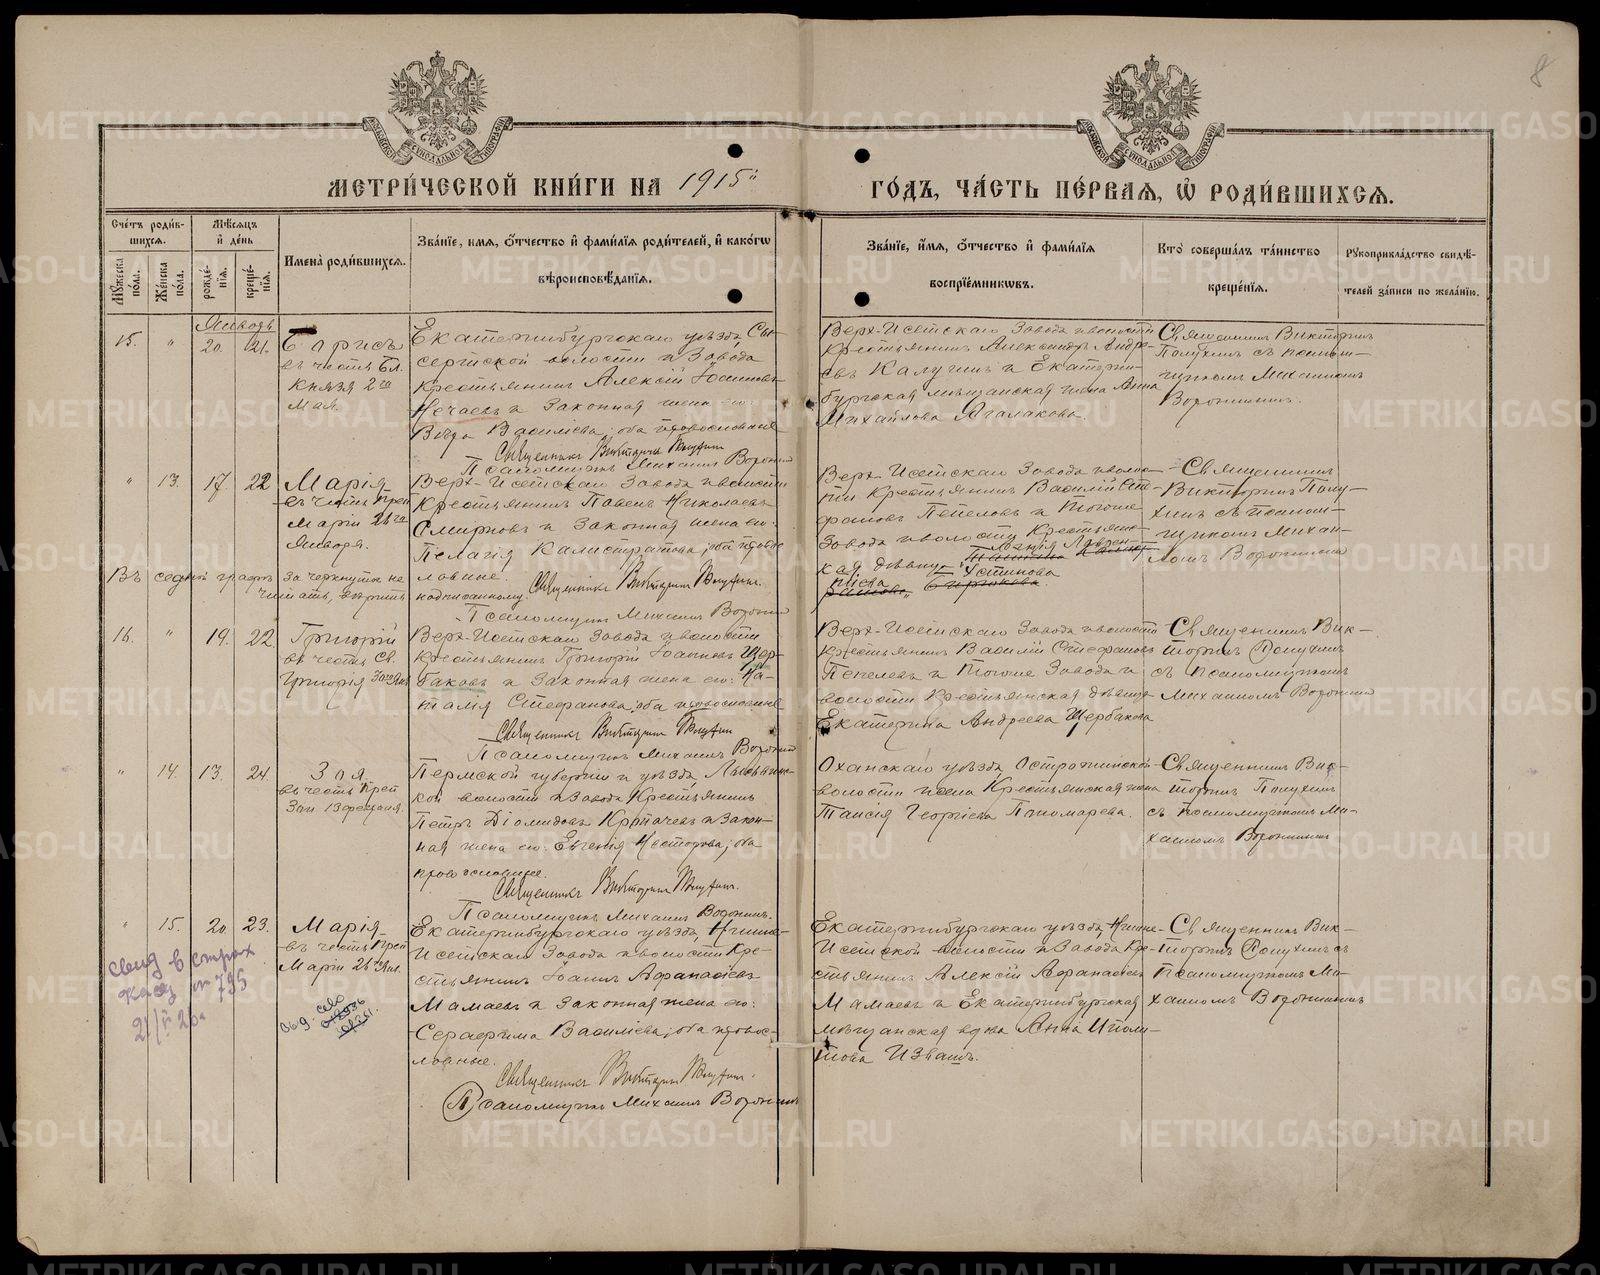 8
МЕТРИ́ЧЕСКОЙ КНИ́ГИ НА 1915й
ГО́ДЪ, ЧА́СТЬ ПЕ́РВАЯ, Ѽ РОДИ́ВШИХСЯ.
Сче́тъ роди́в-
шихся.
Мꙋ́жеска по́ла.
Же́нска по́ла.
Мѣ́сяцъ
и҆ де́нь
рожде́-
нїя.
креще́-
нїя.
И҆мена̀ роди́вшихся.
Зва́нїе, имя, о҆́тчество и҆ фами́лїя роди́телей, и҆ како́гѡ
вѣроисповѣ́данїя.
Зва́нїе, и҆́мя, о҆́тчество и҆ фами́лїя
воспрїе́мникѡвъ.
Кто̀ соверша́лъ та́инство
креще́нїя.
Рꙋкоприкла́дство свидѣ́-
телей за́писи по жела́нїю.
Январь
15. " 20. 21.
Борисъ
въ честь Бл.
Князя 2го
Мая.
Екатеринбургскаго уѣзда, Сы-
сертской волости и завода
крестьянинъ Алексій Іоанновъ
Нечаевъ и законная жена его:
Вѣра Васильева; оба православные
Священникъ Викторинъ Полухин
Псаломщикъ Михаилъ Воронин
Верх-Исетскаго завода и волости
крестьянинъ Александръ Андре-
евъ Калугинъ и Екатерин-
бургская мѣщанская жена Анна
Михайлова Агалакова.
Священникъ Викторинъ
Полухинъ съ псалом-
щикомъ Михаиломъ
Воронинымъ.
" 13. 17. 22.
Марія
въ честь Преп.
Маріи 26го
Января.
Верх-Исетскаго завода и волости
крестьянинъ Павелъ Николаевъ
Смирновъ и законная жена его:
Пелагія Калистратова; оба право-
славные.
Священникъ Викторинъ Полухин.
Псаломщикъ Михаилъ Воронин
Верх-Исетскаго завода и волос-
ти крестьянинъ Василій Сте-
фановъ Пепелевъ и тогоже
завода и волости крестьянс-
кая дѣвица
Устинова
Священникъ
Викторинъ Полу-
хинъ съ псалом-
щикомъ Михаи-
ломъ Воронинымъ
Въ седьмой графѣ зачеркнутое не
читать, вѣрить
надписанному.
16. " 19. 22.
Григорій
въ честь св.
Григорія 30го Янв
Верх-Исетскаго завода и волости
крестьянинъ Григорій Іоанновъ Щер-
баковъ и законная жена его: На-
талія Стефанова; оба православные
Священникъ Викторинъ Полухин
Псаломщикъ Михаилъ Воронин
Верх-Исетскаго завода и волости
крестьянинъ Василій Стефановъ
Пепелевъ и тогоже завода и
волости крестьянская дѣвица
Екатерина Андреева Щербакова
Священникъ Вик-
торинъ Полухинъ
съ псаломщикомъ
Михаиломъ Воронинымъ
" 14. 13. 24.
Зоя
въ честь Преп
Зои 13 февраля.
Пермской губерніи и уѣзда, Лысьвинс-
кой волости и завода крестьянинъ
Петръ Діомидовъ Крапачевъ и закон-
ная жена его: Евгенія Несторова; оба
православные.
Священникъ Викторинъ Полухин.
Псаломщикъ Михаилъ Воронинъ.
Оханскаго уѣзда, Острожинской
волости и села крестьянская жена
Таисія Георгіева Пономарева.
Священникъ Вик-
торинъ Полухинъ
съ псаломщикомъ Ми-
хаиломъ Воронинымъ
" 15. 20. 23.
Марія
въ честь Преп
Маріи 26го Янв.
Екатеринбургскаго уѣзда, Нижне-
Исетскаго завода и волости кре-
стьянинъ Іоаннъ Афанасіевъ
Мамаевъ и законная жена его:
Серафима Васильева; оба правос-
лавные.
Священникъ Викторинъ Полухин.
Псаломщикъ Михаилъ Воронинъ
Екатеринбургскаго уѣзда, Нижне-
Исетской волости и завода кре-
стьянинъ Алексій Афанасіевъ
Мамаевъ и Екатеринбургская
мѣщанская вдова Анна Иполи-
това Ивашъ.
Священникъ Вик-
торинъ Полухинъ съ
псаломщикомъ Ми-
хаиломъ Воронинымъ
свид в страх
кассу № 795
METRIKI.GASO-URAL.RU